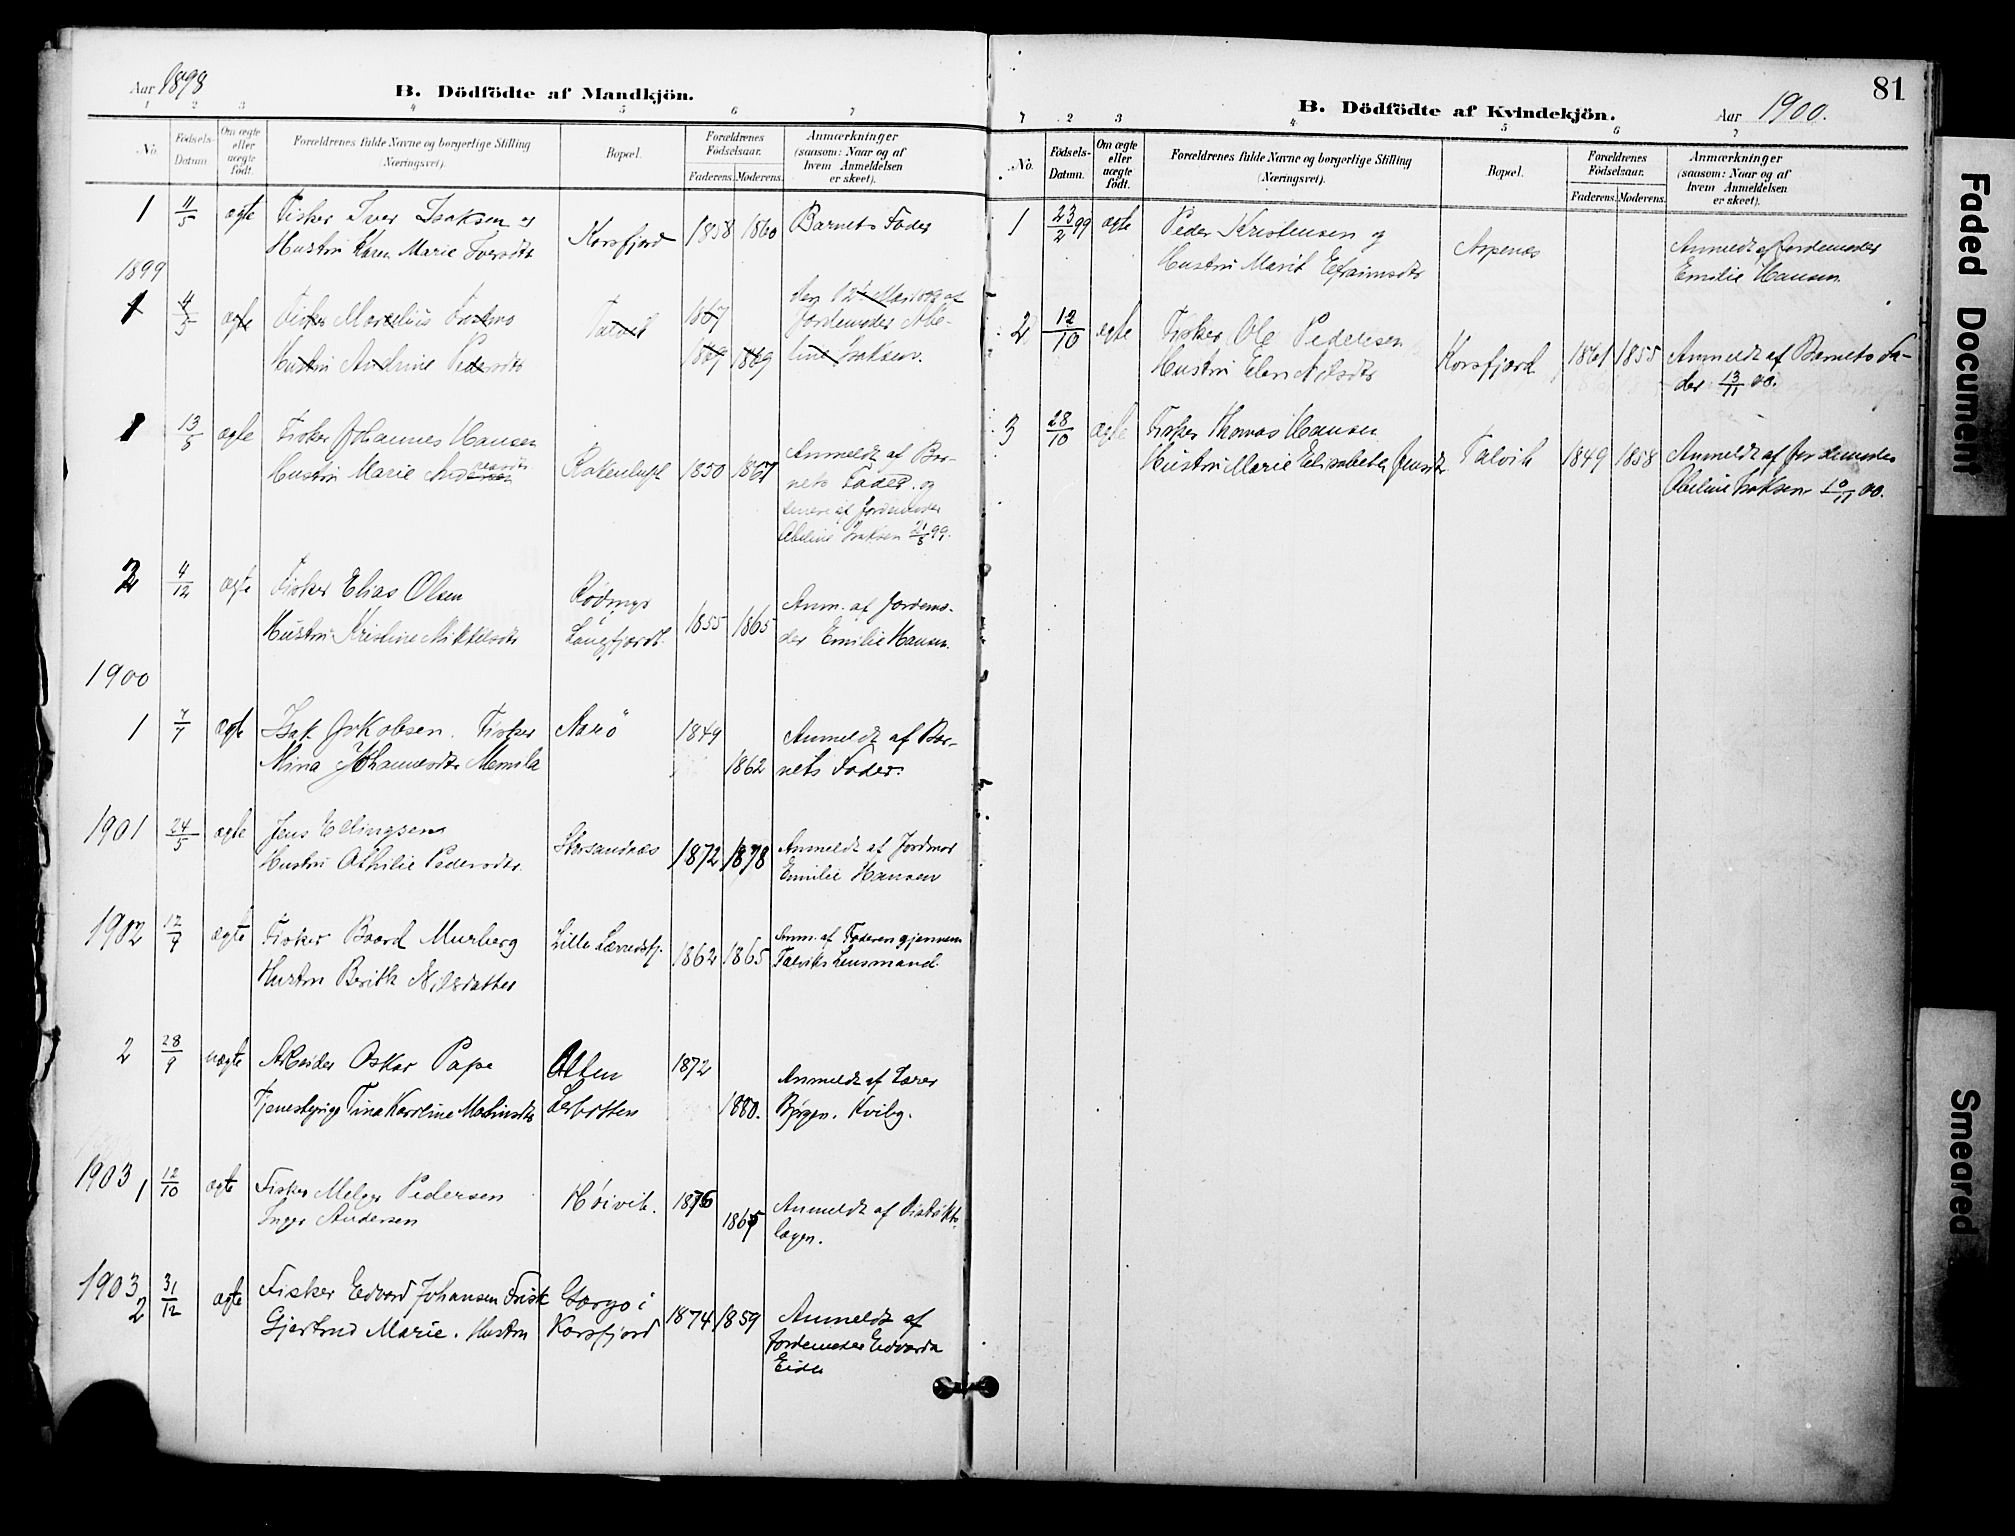 Aar 1898
B. Dödfödte af Mandkjön.
1 2 3 4 5 6 7
No.
Födsels-Datum.
Om ægte eller uægte födt.
Forældrenes fulde Navne og borgerlige Stilling (Næringsvei).
Bopæl.
Forældrenes Födselsaar.
Faderens. Moderens.
Anmærkninger (saasom: Naar og af hvem Anmeldelsen er skeet).
1 11/5 ægte Fisker Iver Isaksen og Korsfjord 1858 1860 Barnets Fader
Hustru Karen Marie Iversdtr
1899
1 4/3 ægte Fisker Marselius 1867
Hustru Andrine Pedersdtr 1869 1869
Jordemoder Abeline Isaksen.
1 13/5 ægte Fisker Johannes Hansen
Hustru Marie 1850 1867
Anmeldt af Bar-
nets Fader. og
senere af Jordemoder
Abeline Isaksen 21/5 99.
2 4/12 ægte Fisker Elias Olsen
Hustru Kristine Mikkelsdtr
Rødmyr
Langfjordb. 1855 1865
Anm. af Jordemo-
der Emilie Hansen.
1900
1 7/7 ægte Isak Jakobsen. Fisker Aarö 1849
Nina Johannesdtr Memila 1862
Anmeldt af Bar-
nets Fader.
1901 24/5 ægte Jens Ellingsen
Hustru Othilie Pedersdtr. Storsandnæs 1872 1878
Anmeldt af Jordmor
Emilie Hansen
1902 12/7 ægte Fisker Baard Murberg
Hustru Berith Nilsdatter
Lille Lerredsfj. 1862 1865
Anm. af Faderen gjennem
Talviks Lensmand.
2 28/9 uægte Arbeider Oskar Pape Alten 1872
Tjenestepige Tina Karoline 1880.
Anmeldt af Lærer
Bjørgen. Kviby.
1903 1 12/10 ægte Fisker Pedersen Høivik. 1876
Inger Andersen 1865
Anmeldt af Distrikts-
lægen.
1903 2 31/12 ægte Fisker Edvard Johansen Frisk
Gjertrud Marie. Hustru
i
Korsfjord 1874 1859
Anmeldt af
Jordemoder Edvarda
Eide
81
B. Dödfödte af Kvindekjön.
Aar 1900.
1 2 3 4 5 6 7
No.
Födsels-Datum.
Om ægte eller uægte födt.
Forældrenes fulde Navne og borgerlige Stilling (Næringsvei).
Bopæl.
Forældrenes Födselsaar.
Faderens. Moderens.
Anmærkninger (saasom: Naar og af hvem Anmeldelsen er skeet).
1 23/2 99 ægte Peder Kristensen og
Hustru Marit Efraimsdtr
Aspenes
Anmeldt af Jordemoder
Emilie Hansen
2 12/10 ægte Fisker Ole Pedersen
Hustru Elen Nilsdtr
Korsfjord 1861 1855
Anmeldt af Barnets Fa-
der 13/11 00.
3 28/10 ægte Fisker Thomas Hansen
Hustru Marie Elisabeth Jensdtr
Talvik 1849 1858
Anmeldt af Jordemoder
Abeline Isaksen 10/11 00.
Faded Document
Smeared